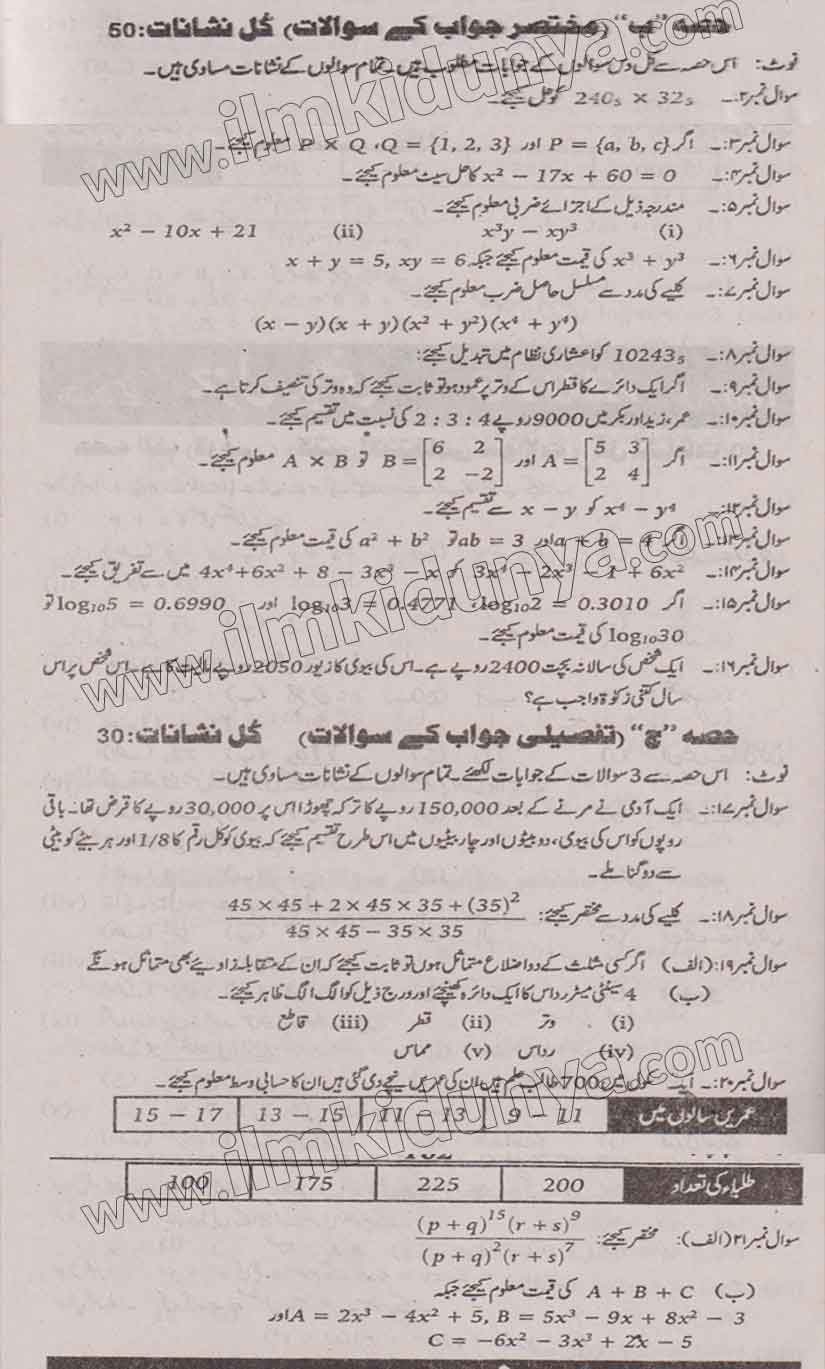 حصہ "ب" (مختصر جواب کے سوالات) کُل نشانات: 50
نوٹ: اس حصہ سے کل دس سوالوں کے جوابات مطلوب ہیں۔ تمام سوالوں کے نشانات مساوی ہیں۔
سوال نمبر۲:۔ 240₅ × 32₅ کو حل کیجئے۔
سوال نمبر۳:۔ اگر P = {a, b, c} اور Q = {1, 2, 3}، P × Q معلوم کیجئے۔
سوال نمبر۴:۔ x² − 17x + 60 = 0 کا حل سیٹ معلوم کیجئے۔
سوال نمبر۵:۔ مندرجہ ذیل کے اجزائے ضربی معلوم کیجئے۔
(i) x³y − xy³ (ii) x² − 10x + 21
سوال نمبر۶:۔ x³ + y³ کی قیمت معلوم کیجئے جبکہ x + y = 5, xy = 6
سوال نمبر۷:۔ کلیے کی مدد سے مسلسل حاصل ضرب معلوم کیجئے۔
(x − y)(x + y)(x² + y²)(x⁴ + y⁴)
سوال نمبر۸:۔ 10243₅ کو اعشاری نظام میں تبدیل کیجئے:
سوال نمبر۹:۔ اگر ایک دائرے کا قطر اس کے وتر پر عمود ہو تو ثابت کیجئے کہ وہ وتر کی تنصیف کرتا ہے۔
سوال نمبر۱۰:۔ عمر، زید اور بکر میں 9000 روپے 4 : 3 : 2 کی نسبت میں تقسیم کیجئے۔
سوال نمبر۱۱:۔ اگر A = [5 3; 2 4] اور B = [6 2; 2 −2] تو A × B معلوم کیجئے۔
سوال نمبر۱۲:۔ x⁴ − y⁴ کو x − y سے تقسیم کیجئے۔
سوال نمبر۱۳:۔ اگر a + b = 4 اور ab = 3 تو a² + b² کی قیمت معلوم کیجئے۔
سوال نمبر۱۴:۔ 3x⁴ − 2x³ − 1 + 6x² کو 4x⁴+6x² + 8 − 3x³ − x میں سے تفریق کیجئے۔
سوال نمبر۱۵:۔ اگر log₁₀2 = 0.3010، log₁₀3 = 0.4771 اور log₁₀5 = 0.6990 تو
log₁₀30 کی قیمت معلوم کیجئے۔
سوال نمبر۱۶:۔ ایک شخص کی سالانہ بچت 2400 روپے ہے۔ اس کی بیوی کا زیور 2050 روپے مالیت کا ہے۔ اس شخص پر اس
سال کتنی زکوٰۃ واجب ہے؟
حصہ "ج" (تفصیلی جواب کے سوالات) کُل نشانات: 30
نوٹ: اس حصہ سے 3 سوالات کے جوابات لکھئے۔ تمام سوالوں کے نشانات مساوی ہیں۔
سوال نمبر۱۷:۔ ایک آدمی نے مرنے کے بعد 150,000 روپے کا ترکہ چھوڑا اس پر 30,000 روپے کا قرض تھا۔ باقی
روپوں کو اس کی بیوی، دو بیٹوں اور چار بیٹیوں میں اس طرح تقسیم کیجئے کہ بیوی کو کل رقم کا 1/8 اور ہر بیٹے کو بیٹی
سے دو گنا ملے۔
سوال نمبر۱۸:۔ کلیے کی مدد سے مختصر کیجئے: (45 × 45 + 2 × 45 × 35 + (35)²) / (45 × 45 − 35 × 35)
سوال نمبر۱۹: (الف) اگر کسی مثلث کے دو اضلاع متماثل ہوں تو ثابت کیجئے کہ ان کے متقابلہ زاویے بھی متماثل ہونگے
(ب) 4 سینٹی میٹر رداس کا ایک دائرہ کھینچئے اور درج ذیل کو الگ الگ ظاہر کیجئے۔
(i) وتر (ii) قطر (iii) قاطع
(iv) رداس (v) مماس
سوال نمبر۲۰:۔ ایک سکول میں 700 طالب علم ہیں ان کی عمریں نیچے دی گئی ہیں ان کا حسابی وسط معلوم کیجئے۔
عمریں سالوں میں 9 − 11 11 − 13 13 − 15 15 − 17
طلباء کی تعداد 200 225 175 100
سوال نمبر۲۱ (الف): مختصر کیجئے: (p + q)¹⁵(r + s)⁹ / (p + q)²(r + s)⁷
(ب) A + B + C کی قیمت معلوم کیجئے جبکہ
A = 2x³ − 4x² + 5, B = 5x³ − 9x + 8x² − 3 اور
C = −6x² − 3x³ + 2x − 5
www.ilmkidunya.com
www.ilmkidunya.com
www.ilmkidunya.com